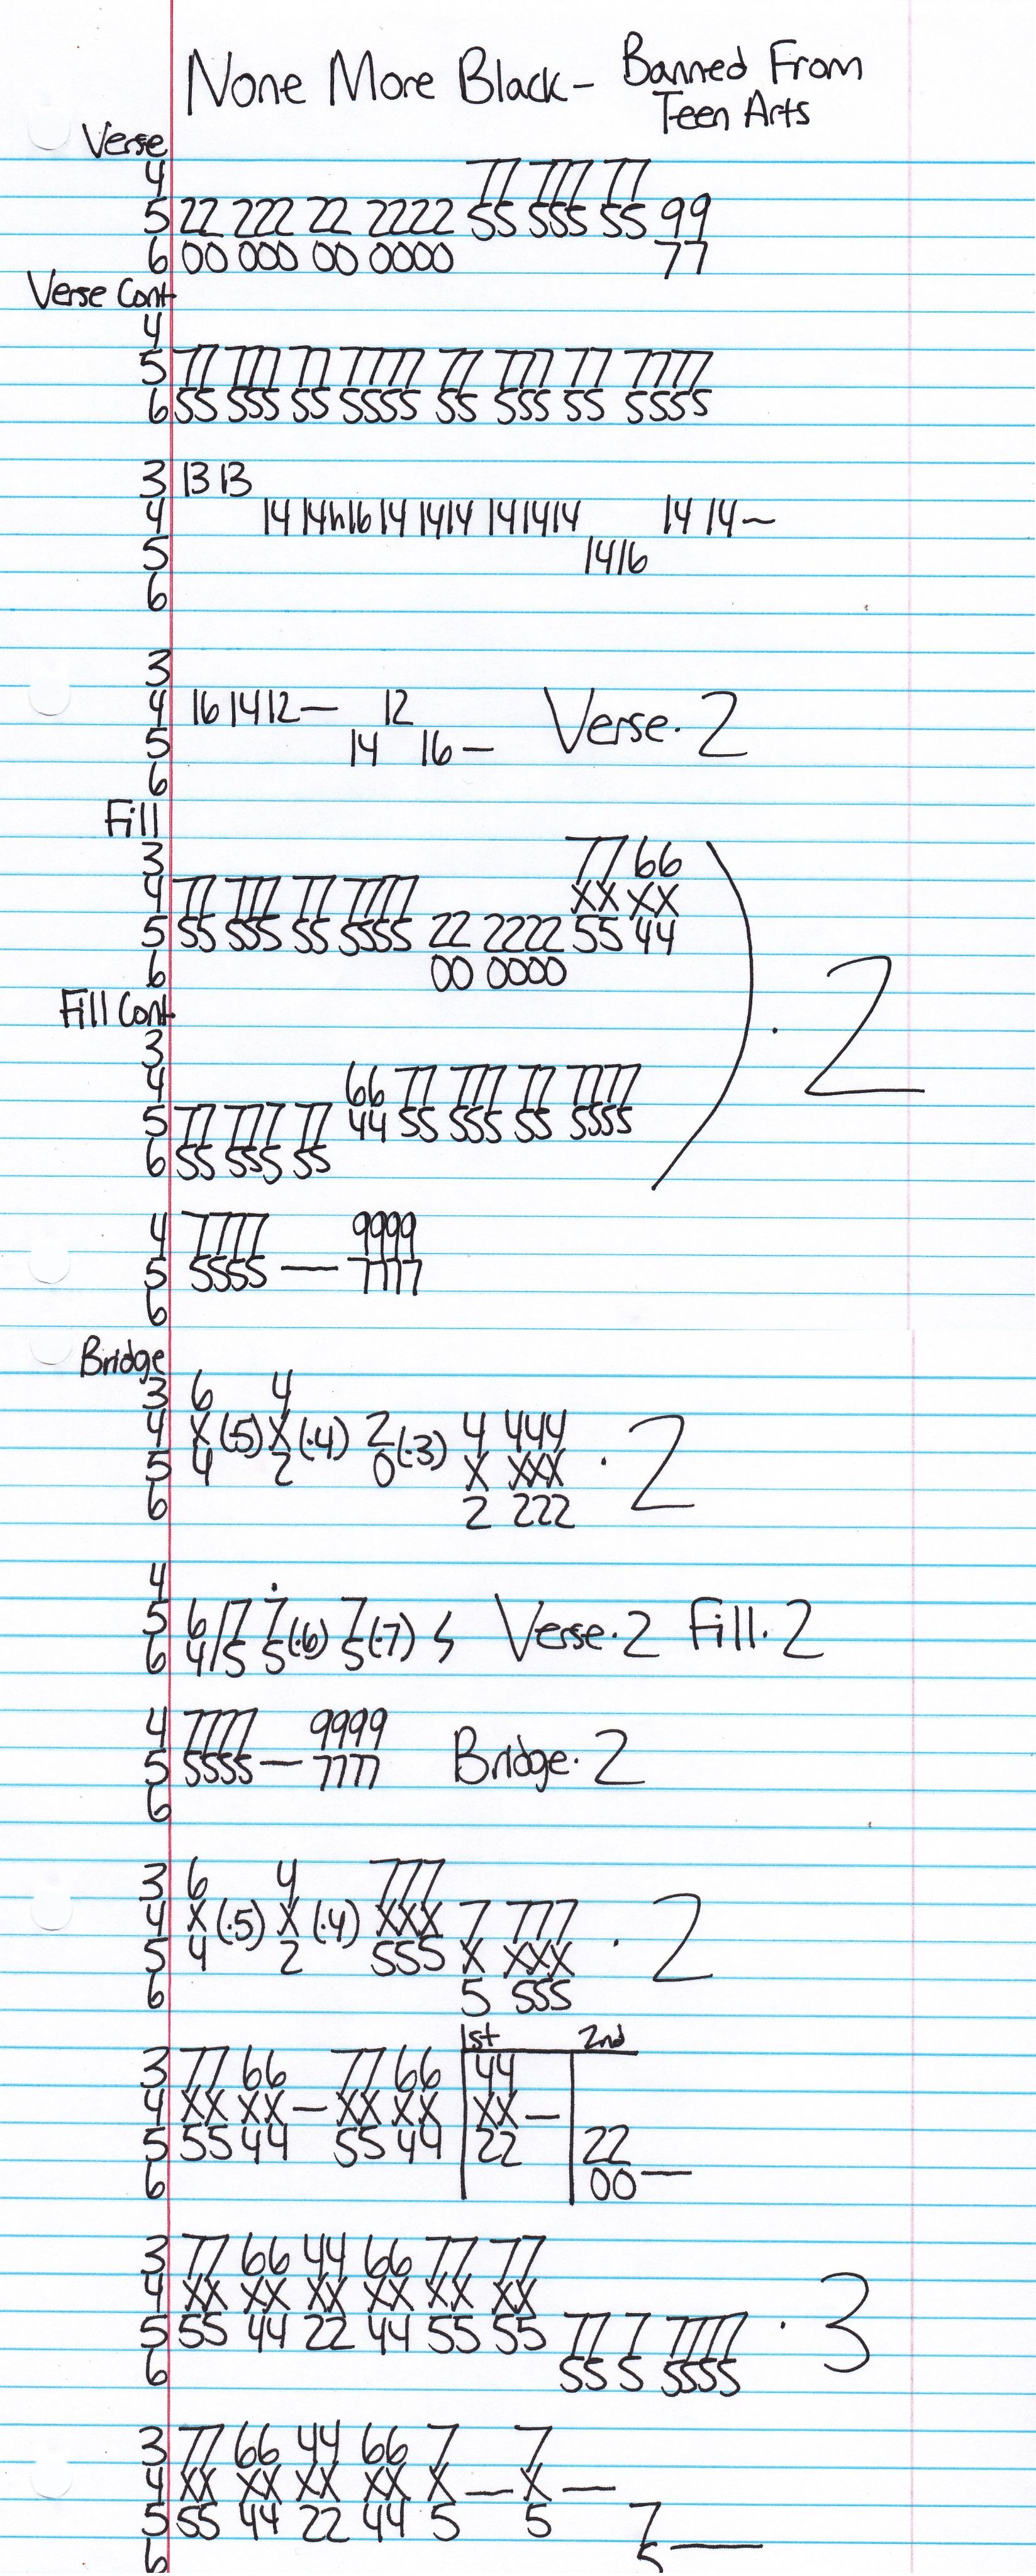 None More Black - Banned From
Teen Arts
Verse
4 77 777 77
5 22 222 22 2222 55 555 55 99
6 00 000 00 0000 77
Verse Cont
4
5 77 777 77 7777 77 777 77 7777
6 55 555 55 5555 55 555 55 5555
3 13 13
4 14 14h16 14 1414 141414 14 14~
5 1416
6
3
4 16 14 12— 12 Verse · 2
5 14 16—
6
Fill
3 77 66
4 77 777 77 7777 XX XX
5 55 555 55 5555 22 2222 55 44
6 00 0000
· 2
Fill Cont.
3
4 66 77 777 77 7777
5 77 777 77 44 55 555 55 5555
6 55 555 55
4 7777 9999
5 5555 — 7777
6
Bridge
3 6 4
4 X (·5) X (·4) 2 (·3) 4 444
5 4 2 0 X XXX · 2
6 2 222
4
5 6/7 7̇(·6) 7(·7) Verse · 2 Fill · 2
6 4/5 5 5
4 7777 9999
5 5555 — 7777 Bridge · 2
6
3 6 4 777
4 X (·5) X (·4) XXX 7 777 · 2
5 4 2 555 X XXX
6 5 555
1st 2nd
3 77 66 77 66 44
4 XX XX — XX XX XX —
5 55 44 55 44 22 22
6 00 —
3 77 66 44 66 77 77
4 XX XX XX XX XX XX
5 55 44 22 44 55 55 77 7 7777 · 3
6 55 5 5555
3 77 66 44 66 7 7
4 XX XX XX XX X — X —
5 55 44 22 44 5 5 7
6 5 —